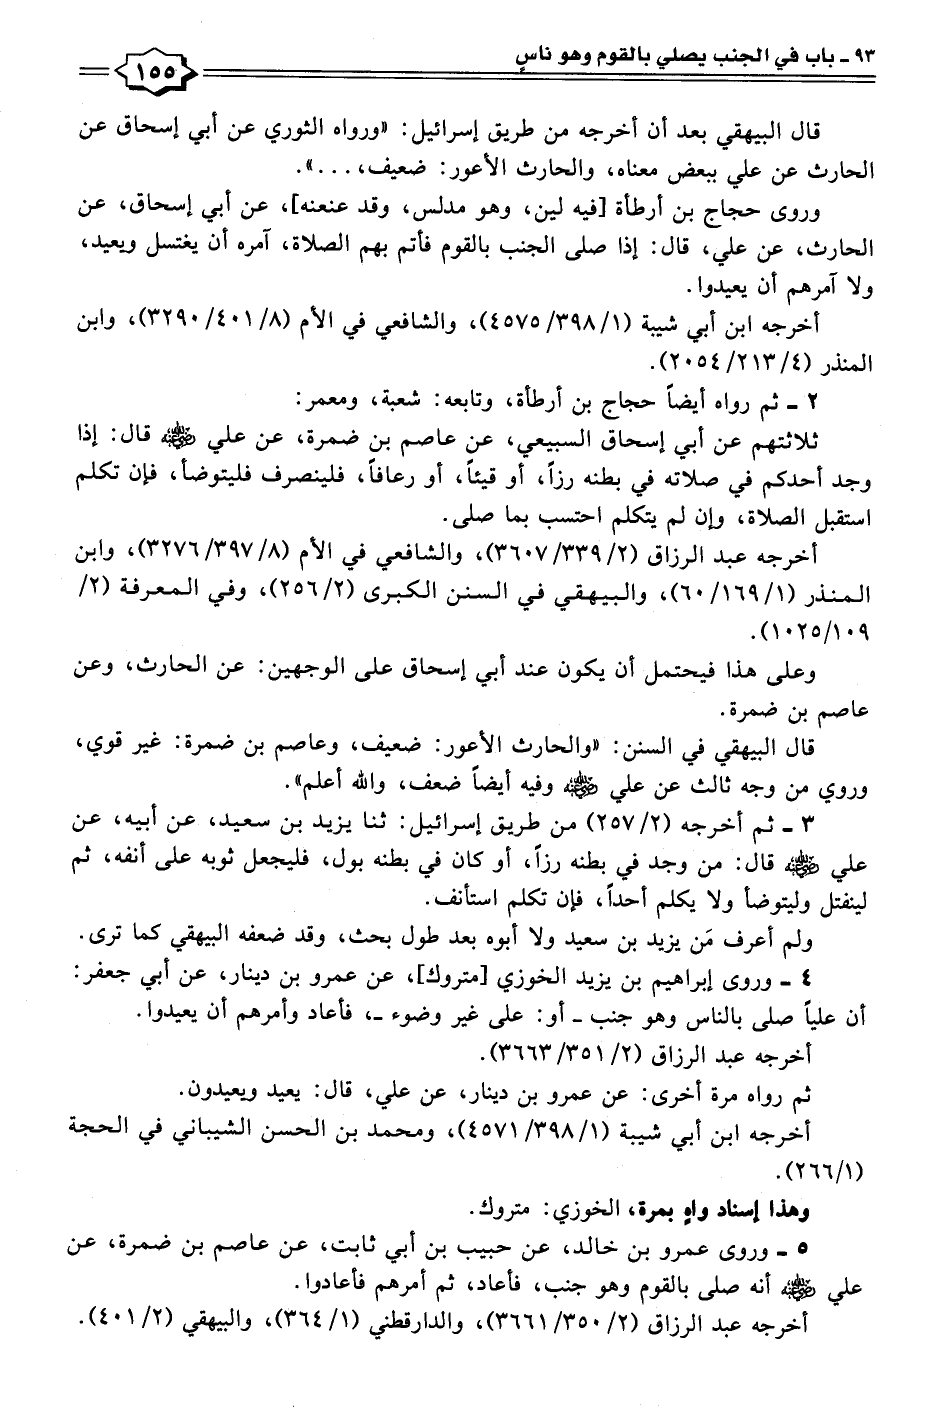 ٩٣ - باب في الجنب يصلي بالقوم وهو ناسٍ
١٥٥
قال البيهقي بعد أن أخرجه من طريق إسرائيل: «ورواه الثوري عن أبي إسحاق عن
الحارث عن علي ببعض معناه، والحارث الأعور: ضعيف، ...».
وروى حجاج بن أرطأة [فيه لين، وهو مدلس، وقد عنعنه]، عن أبي إسحاق، عن
الحارث، عن علي، قال: إذا صلى الجنب بالقوم فأتم بهم الصلاة، آمره أن يغتسل ويعيد،
ولا آمرهم أن يعيدوا.
أخرجه ابن أبي شيبة (١/ ٣٩٨/ ٤٥٧٥)، والشافعي في الأم (٨/ ٤٠١/ ٣٢٩٠)، وابن
المنذر (٤/ ٢١٣/ ٢٠٥٤).
٢ - ثم رواه أيضاً حجاج بن أرطأة، وتابعه: شعبة، ومعمر:
ثلاثتهم عن أبي إسحاق السبيعي، عن عاصم بن ضمرة، عن علي رضي الله عنه قال: إذا
وجد أحدكم في صلاته في بطنه رزاً، أو قيئاً، أو رعافاً، فلينصرف فليتوضأ، فإن تكلم
استقبل الصلاة، وإن لم يتكلم احتسب بما صلى.
أخرجه عبد الرزاق (٢/ ٣٣٩/ ٣٦٠٧)، والشافعي في الأم (٨/ ٣٩٧/ ٣٢٧٦)، وابن
المنذر (١/ ١٦٩/ ٦٠)، والبيهقي في السنن الكبرى (٢/ ٢٥٦)، وفي المعرفة (٢/
١٠٩/ ١٠٢٥).
وعلى هذا فيحتمل أن يكون عند أبي إسحاق على الوجهين: عن الحارث، وعن
عاصم بن ضمرة.
قال البيهقي في السنن: «والحارث الأعور: ضعيف، وعاصم بن ضمرة: غير قوي،
وروي من وجه ثالث عن علي رضي الله عنه وفيه أيضاً ضعف، والله أعلم».
٣ - ثم أخرجه (٢/ ٢٥٧) من طريق إسرائيل: ثنا يزيد بن سعيد، عن أبيه، عن
علي رضي الله عنه قال: من وجد في بطنه رزاً، أو كان في بطنه بول، فليجعل ثوبه على أنفه، ثم
لينفتل وليتوضأ ولا يكلم أحداً، فإن تكلم استأنف.
ولم أعرف مَن يزيد بن سعيد ولا أبوه بعد طول بحث، وقد ضعفه البيهقي كما ترى.
٤ - وروى إبراهيم بن يزيد الخوزي [متروك]، عن عمرو بن دينار، عن أبي جعفر:
أن علياً صلى بالناس وهو جنب - أو: على غير وضوء -، فأعاد وأمرهم أن يعيدوا.
أخرجه عبد الرزاق (٢/ ٣٥١/ ٣٦٦٣).
ثم رواه مرة أخرى: عن عمرو بن دينار، عن علي، قال: يعيد ويعيدون.
أخرجه ابن أبي شيبة (١/ ٣٩٨/ ٤٥٧١)، ومحمد بن الحسن الشيباني في الحجة
(١/ ٢٦٦).
وهذا إسناد واهٍ بمرة، الخوزي: متروك.
٥ - وروى عمرو بن خالد، عن حبيب بن أبي ثابت، عن عاصم بن ضمرة، عن
علي رضي الله عنه أنه صلى بالقوم وهو جنب، فأعاد، ثم أمرهم فأعادوا.
أخرجه عبد الرزاق (٢/ ٣٥٠/ ٣٦٦١)، والدارقطني (١/ ٣٦٤)، والبيهقي (٢/ ٤٠١).